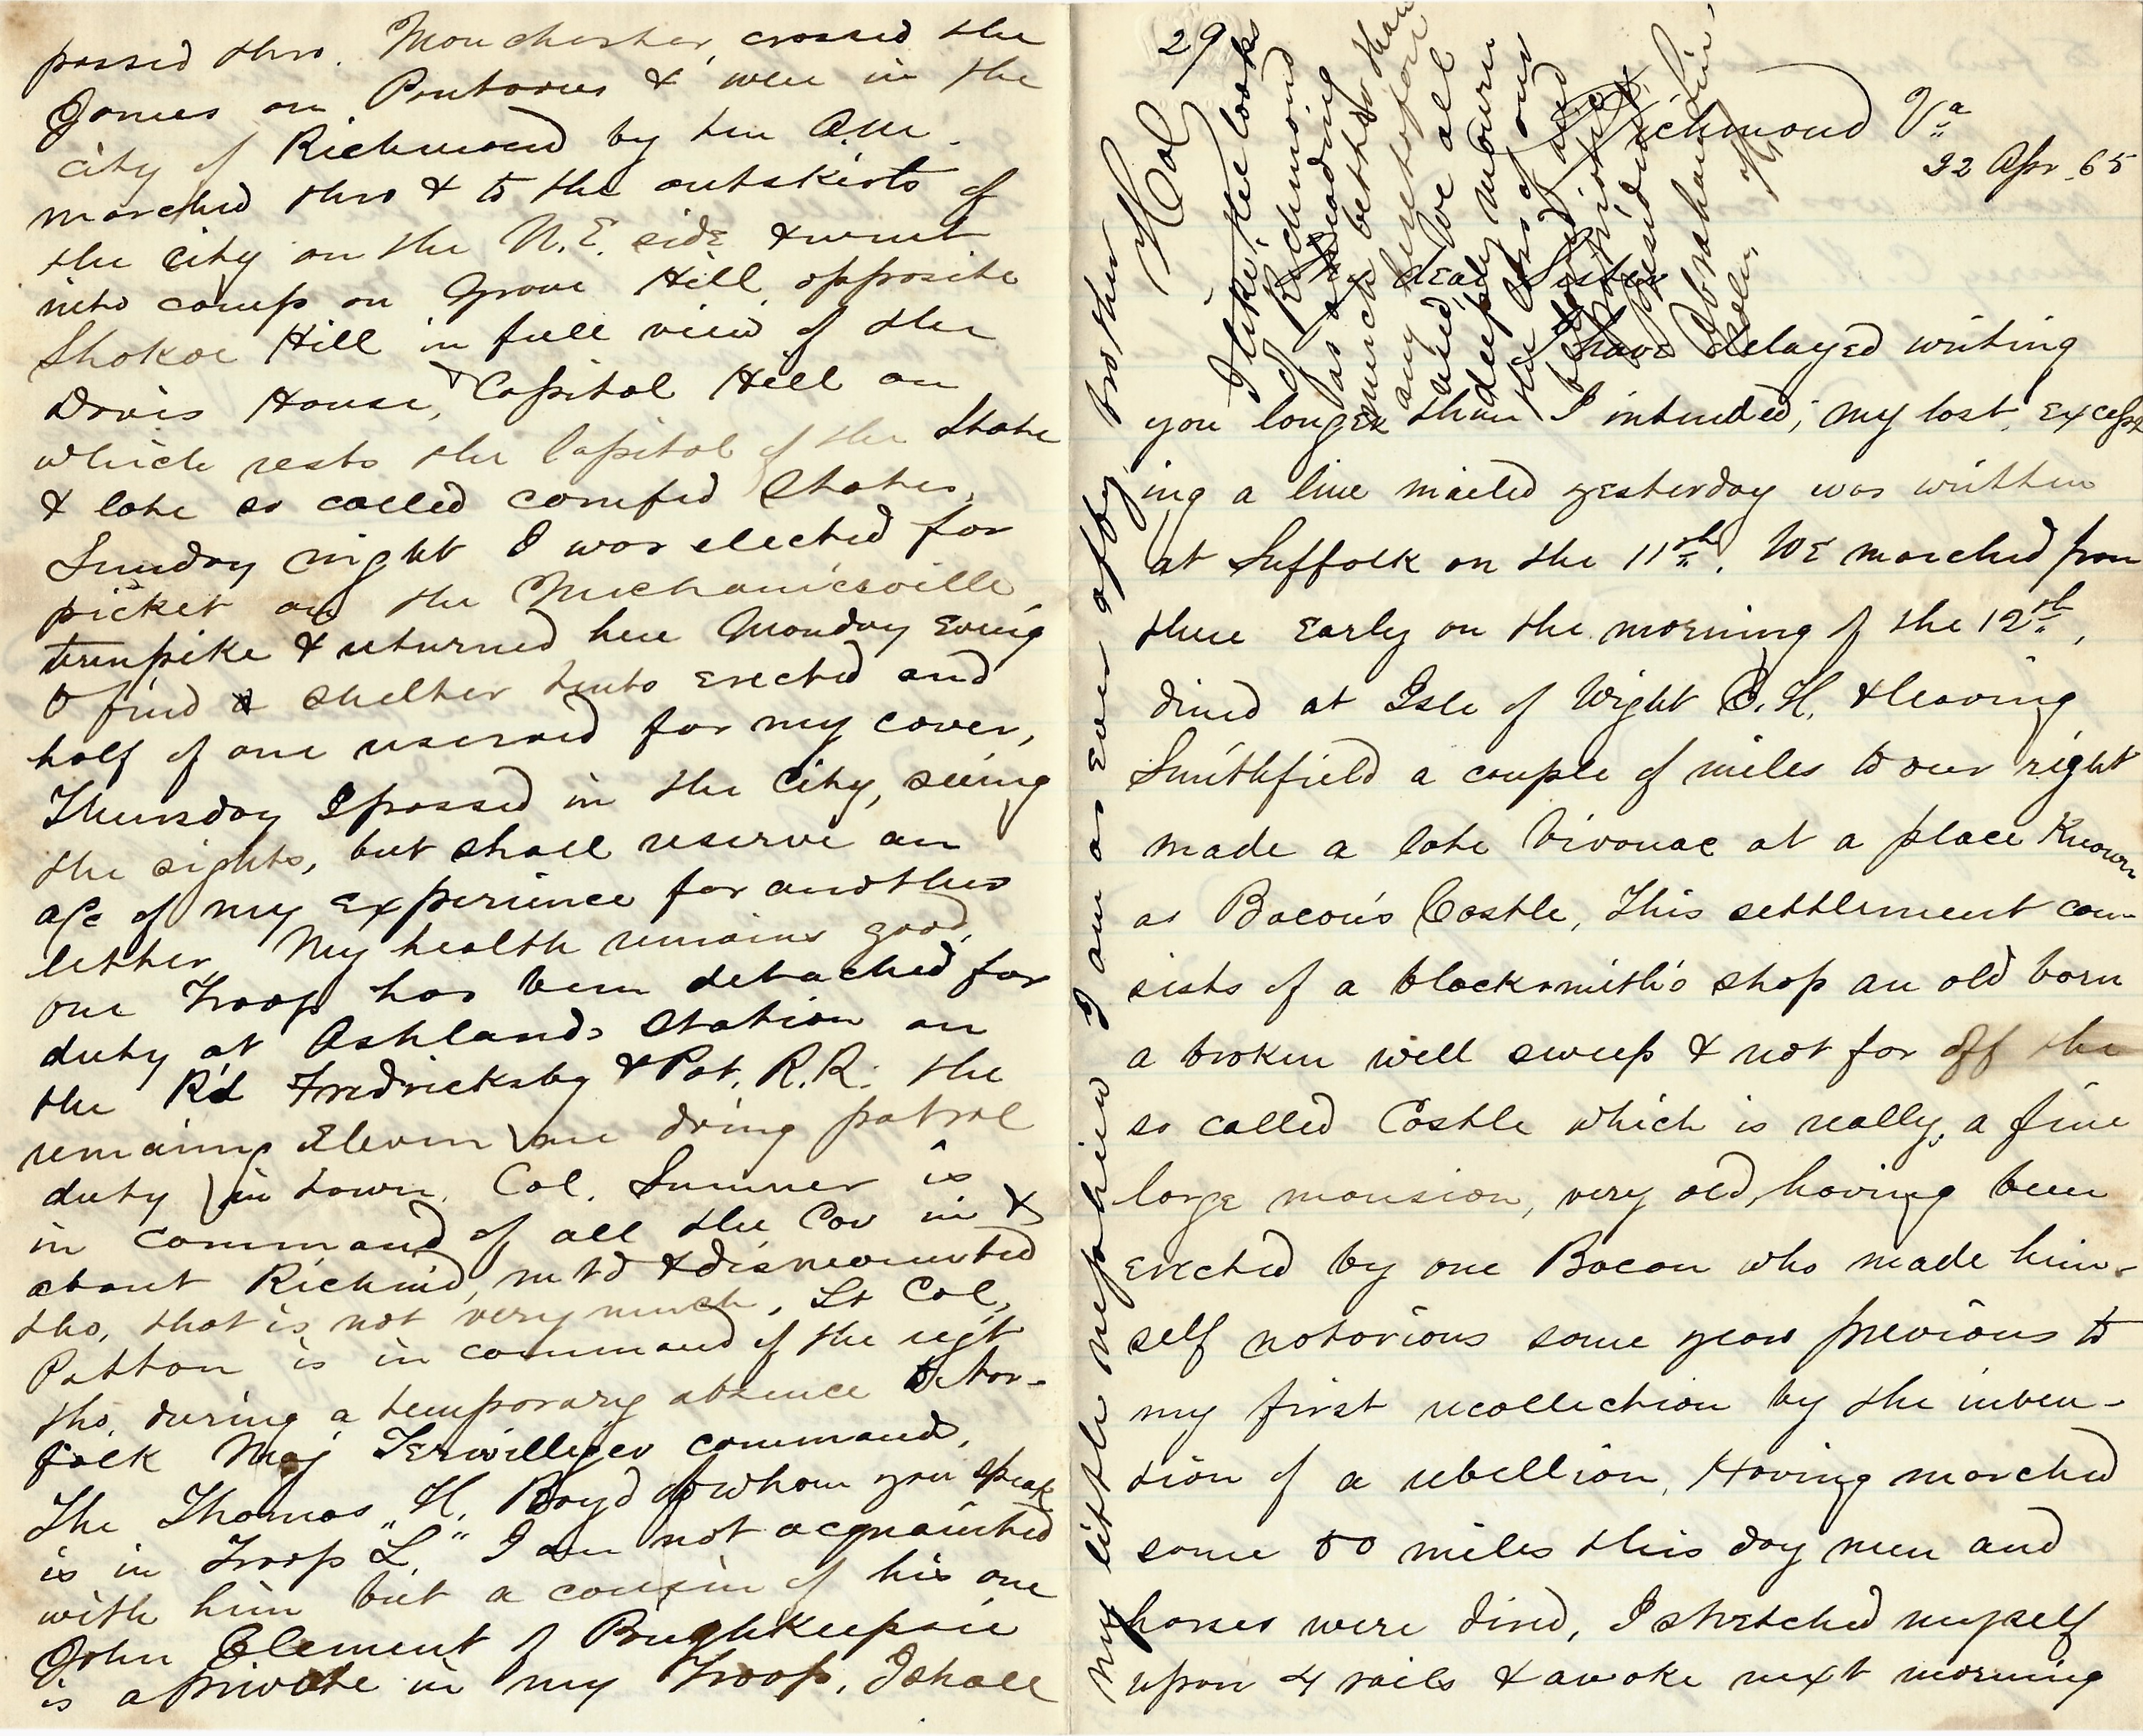 29
Richmond Va
22 Apr. 65
My dear Sister
I have delayed writing
you longer than I intended; my last, except-
ing a line mailed yesterday was written
at Suffolk on the 11th. We marched from
there early on the morning of the 12th,
dined at Isle of Wight C.H. & leaving
Smithfield a couple of miles to our right
made a late bivouac at a place known
as Bacon's Castle, This settlement con-
sists of a blacksmith's shop an old barn
a broken well sweep & not far off the
so called Castle which is really, a fine
large mansion, very old, having been
erected by one Bacon who made him-
self notorious some years previous to
my first recollection by the inven-
tion of a rebellion, Having marched
some 50 miles this day men and
horses were tired, I stretched myself
upon 4 rails & awoke next morning
passed thro. Manchester, crossed the
James on Pontoons & were in the
city of Richmond by ten A.M.
marched thro & to the outskirts of
the city on the N.E. side & went
into camp on Grove Hill opposite
Shokoe Hill in full view of the
Davis House, & Capitol Hill on
which rests the Capitol of the State
& late so called confed States,
Sunday night I was elected for
picket on the Mechanicsville
turnpike & returned here Monday evening
to find shelter tents erected and
half of one reserved for my cover,
Thursday I passed in the City, seeing
the sights, but shall reserve an
a/c of my experience for another
letter. My health remains good,
one Troop has been detached for
duty at Ashlands Station on
the Rd Fredricksbg & Pot. R.R. the
remaing Eleven are doing patrol
duty in town. Col. Sumner is
in command of all the Cav in &
about Richmd, mtd & dismounted
tho, that is not very much, Lt Col,
Patton is in command of the regt
tho, during a temporary absence to Nor-
folk Maj Terwilliger command,
The Thomas H. Boyd of whom you speak
is in Troop "L." I am not acquainted
with him but a cousin of his one
John Clement of Poughkeepsie
is a private in my Troop, I shall
my little nephew I am as ever affy brother
Hal
I like the looks
of Richmond
as a
much better than
any heretofore
We all
deeply mourn
the loss of our
beloved and
President
Abraham Lin-
coln,